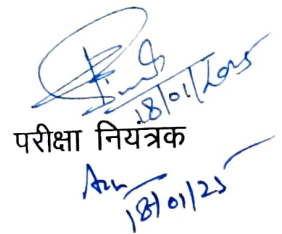 18/01/2025
परीक्षा नियंत्रक
18/01/25